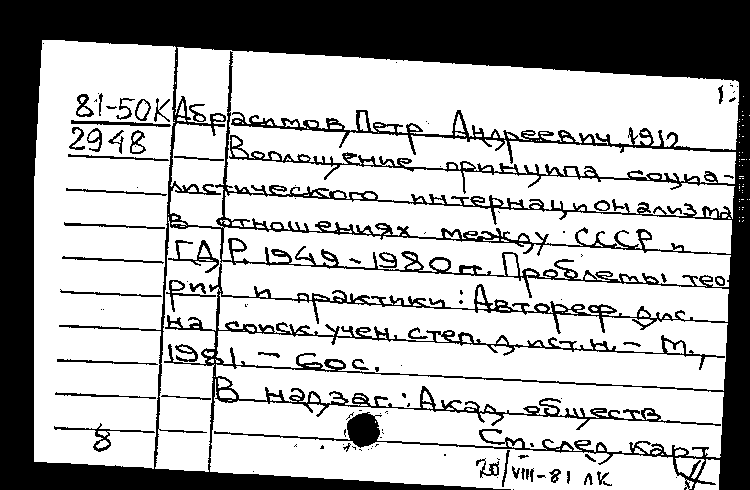 81-50К Абрасимов, Петр Андреевич, 1912
2948 Воплощение принципа социа-
листического интернационализма
в отношениях между СССР и
ГДР. 1949-1980 гг. Проблемы тео-
рии и практики: Автореф. дис.
на соиск. учен. степ. д. ист. н. - М.,
1981. - 60с.
В надзаг.: Акад. обществ.
См. след. карт.
8
20/VIII-81 ЛК